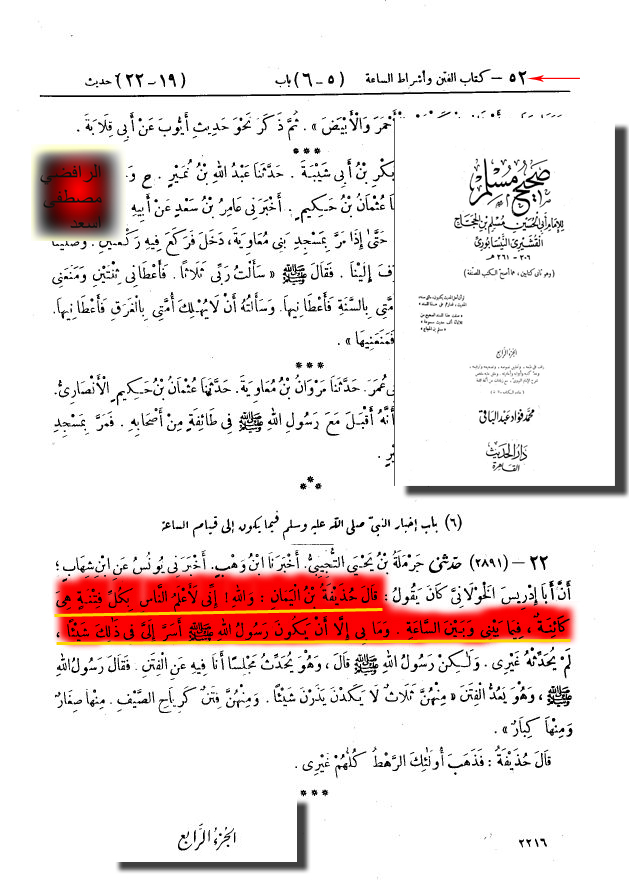 ٥٢ – كتاب الفتن وأشراط الساعة
(٥ – ٦) باب
(١٩ – ٢٢) حديث
الْأَحْمَرَ وَالْأَبْيَضَ » . ثُمَّ ذَكَرَ نَحْوَ حَدِيثِ أَيُّوبَ عَنْ أَبِي قِلَابَةَ .
***
الرافضي
مصطفى
اسعد
بَكْرِ بْنُ أَبِي شَيْبَةَ . حَدَّثَنَا عَبْدُ اللهِ بْنُ نُمَيْرٍ . ح وَ
عُثْمَانُ بْنُ حَكِيمٍ . أَخْبَرَنِي عَامِرُ بْنُ سَعْدٍ عَنْ أَبِيهِ
حَتَّىٰ إِذَا مَرَّ بِمَسْجِدِ بَنِي مُعَاوِيَةَ، دَخَلَ فَرَكَعَ فِيهِ رَكْعَتَيْنِ . وَصَلَّيْنَا
إِلَيْنَا . فَقَالَ ﷺ « سَأَلْتُ رَبِّي ثَلَاثًا. فَأَعْطَانِي ثِنْتَيْنِ وَمَنَعَنِي
بِالسَّنَةِ فَأَعْطَانِيهَا. وَسَأَلْتُهُ أَنْ لَا يُهْلِكَ أُمَّتِي بِالْغَرَقِ فَأَعْطَانِيهَا.
فَمَنَعَنِيهَا » .
***
عُمَرَ. حَدَّثَنَا مَرْوَانُ بْنُ مُعَاوِيَةَ. حَدَّثَنَا عُثْمَانُ بْنُ حَكِيمٍ الْأَنْصَارِيُّ.
أَنَّهُ أَقْبَلَ مَعَ رَسُولِ اللهِ ﷺ فِي طَائِفَةٍ مِنْ أَصْحَابِهِ . فَمَرَّ بِمَسْجِدِ
***
صحيح مسلم
للإمام أبي الحسين مسلم بن الحجاج
القشيري النيسابوري
٢٠٦ – ٢٦١ هـ
الجزء الرابع
محمد فؤاد عبد الباقي
دار الحديث
القاهرة
(٦) باب إخبار النبيّ صلى الله عليه وسلم فيما يكون إلى قيام الساعة
٢٢ – (٢٨٩١) حَدَّثَنِي حَرْمَلَةُ بْنُ يَحْيَىٰ التُّجِيبِيُّ. أَخْبَرَنَا ابْنُ وَهْبٍ. أَخْبَرَنِي يُونُسُ عَنِ ابْنِ شِهَابٍ ؛
أَنَّ أَبَا إِدْرِيسَ الْخَوْلَانِيَّ كَانَ يَقُولُ : قَالَ حُذَيْفَةُ بْنُ الْيَمَانِ : وَاللهِ ! إِنِّي لَأَعْلَمُ النَّاسِ بِكُلِّ فِتْنَةٍ هِيَ
كَائِنَةٌ ، فِيمَا بَيْنِي وَبَيْنَ السَّاعَةِ . وَمَا بِي إِلَّا أَنْ يَكُونَ رَسُولُ اللهِ ﷺ أَسَرَّ إِلَيَّ فِي ذَٰلِكَ شَيْئًا ،
لَمْ يُحَدِّثْهُ غَيْرِي . وَلَٰكِنْ رَسُولُ اللهِ ﷺ قَالَ، وَهُوَ يُحَدِّثُ مَجْلِسًا أَنَا فِيهِ عَنِ الْفِتَنِ . فَقَالَ رَسُولُ اللهِ
ﷺ ، وَهُوَ يَعُدُّ الْفِتَنَ « مِنْهُنَّ ثَلَاثٌ لَا يَكَدْنَ يَذَرْنَ شَيْئًا . وَمِنْهُنَّ فِتَنٌ كَرِيَاحِ الصَّيْفِ . مِنْهَا صِغَارٌ
وَمِنْهَا كِبَارٌ » .
قَالَ حُذَيْفَةُ : فَذَهَبَ أُولَٰئِكَ الرَّهْطُ كُلُّهُمْ غَيْرِي .
***
الجزء الرابع
٢٢١٦